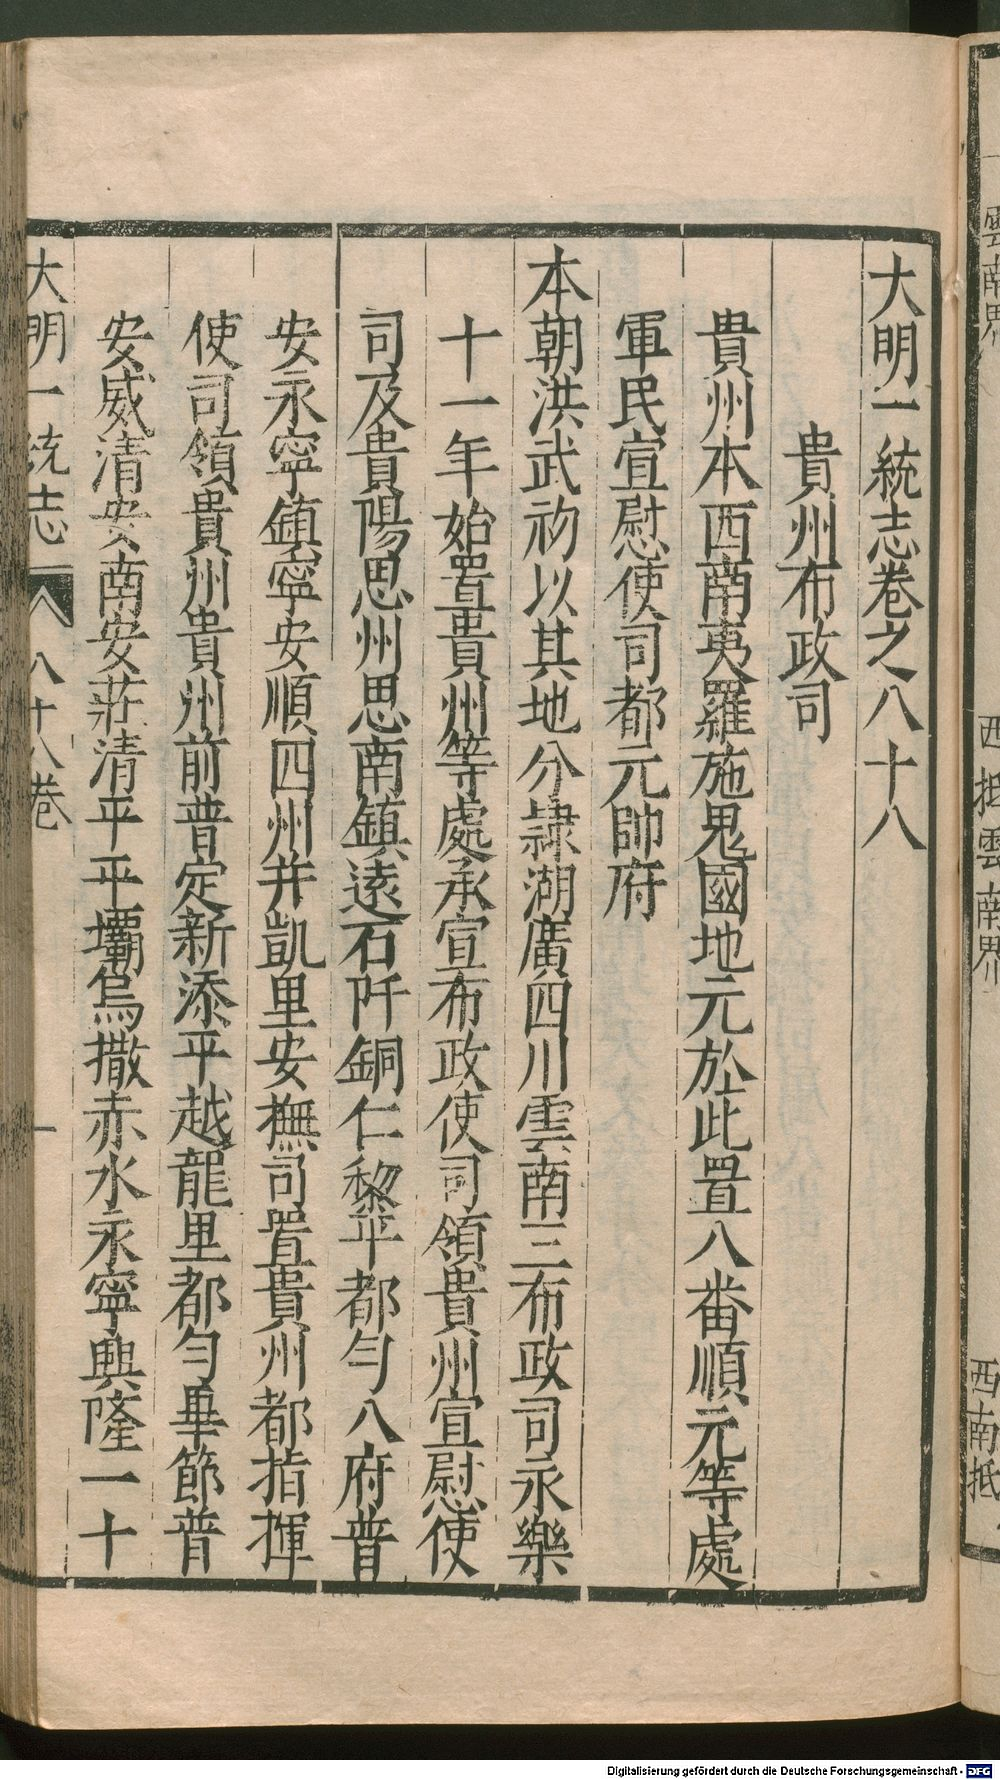 大明一統志卷之八十八
貴州布政司
貴州本西南夷羅施鬼國地元於此置八番順元等處
軍民宣慰使司都元帥府
本朝洪武初以其地分隷湖廣四川雲南三布政司永樂
十一年始置貴州等處承宣布政使司領貴州宣慰使
司及貴陽思州思南鎮遠石阡銅仁黎平都勻八府普
安永寧鎮寧安順四州并凱里安撫司置貴州都指揮
使司領貴州貴州前普定新添平越龍里都勻畢節普
安威清安南安莊清平平壩烏撒赤水永寧興隆一十
大明一統志 八十八卷 一
雲南界
西抵雲南界
西南抵
Digitalisierung gefördert durch die Deutsche Forschungsgemeinschaft - DFG